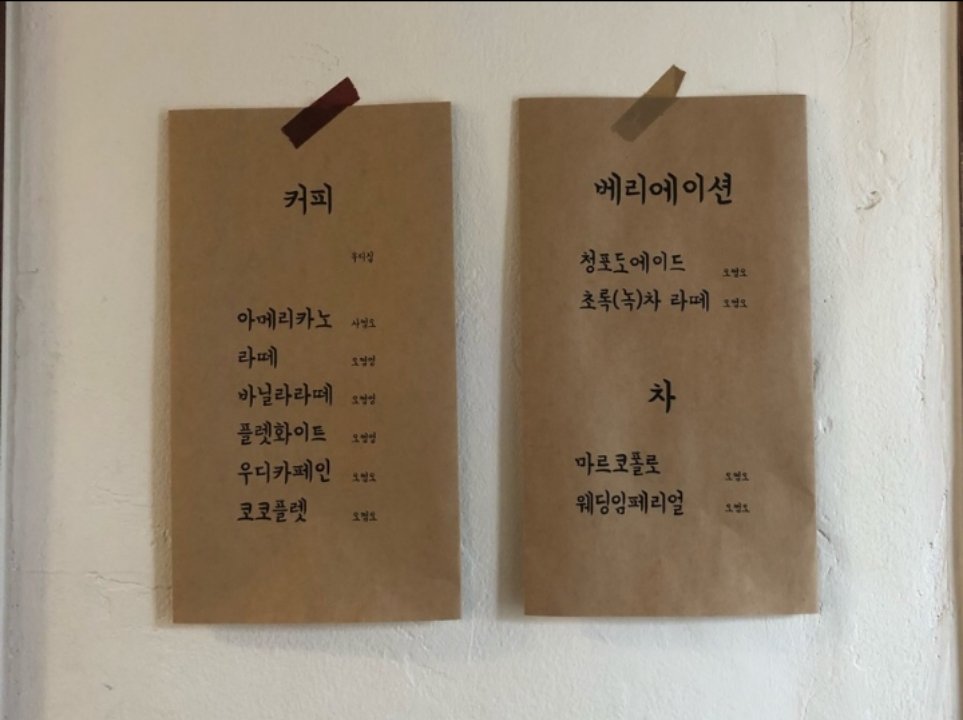 커피
우디집
아메리카노 사영오
라떼 오영영
바닐라라떼 오영영
플렛화이트 오영영
우디카페인 오영오
코코플렛 오영오
베리에이션
청포도에이드 오영오
초록(녹)차 라떼 오영오
차
마르코폴로 오영오
웨딩임페리얼 오영오